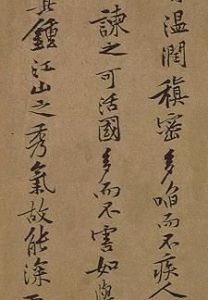 溫潤稹密多啗而不疾人
諫之可活國多而不害如
鍾江山之秀氣故能深